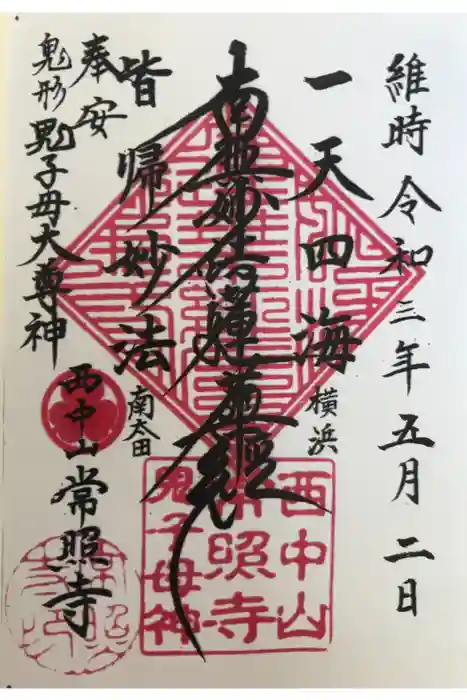 維時 令和三年五月二日
一天四海
横浜
南無妙法蓮華経
皆帰妙法
南太田
奉安
鬼形鬼子母大尊神
西中山 常照寺
西中山
常照寺
鬼子母神